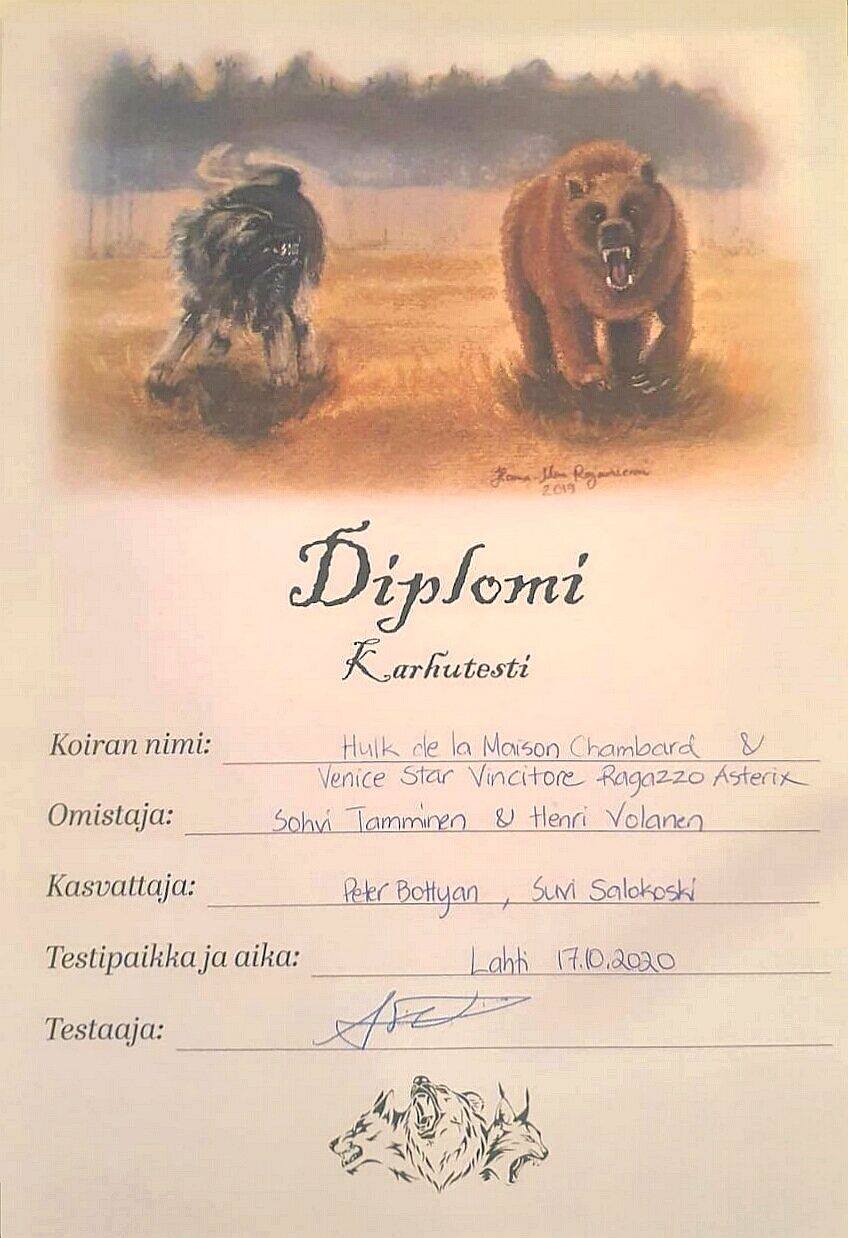 2019
Diplomi
Karhutesti
Koiran nimi: Hulk de la Maison Chambard &
Venice Star Vincitore Ragazzo Asterix
Omistaja: Sohvi Tamminen & Henri Volanen
Kasvattaja: Peter Bottyan, Suvi Salokoski
Testipaikka ja aika: Lahti 17.10.2020
Testaaja: